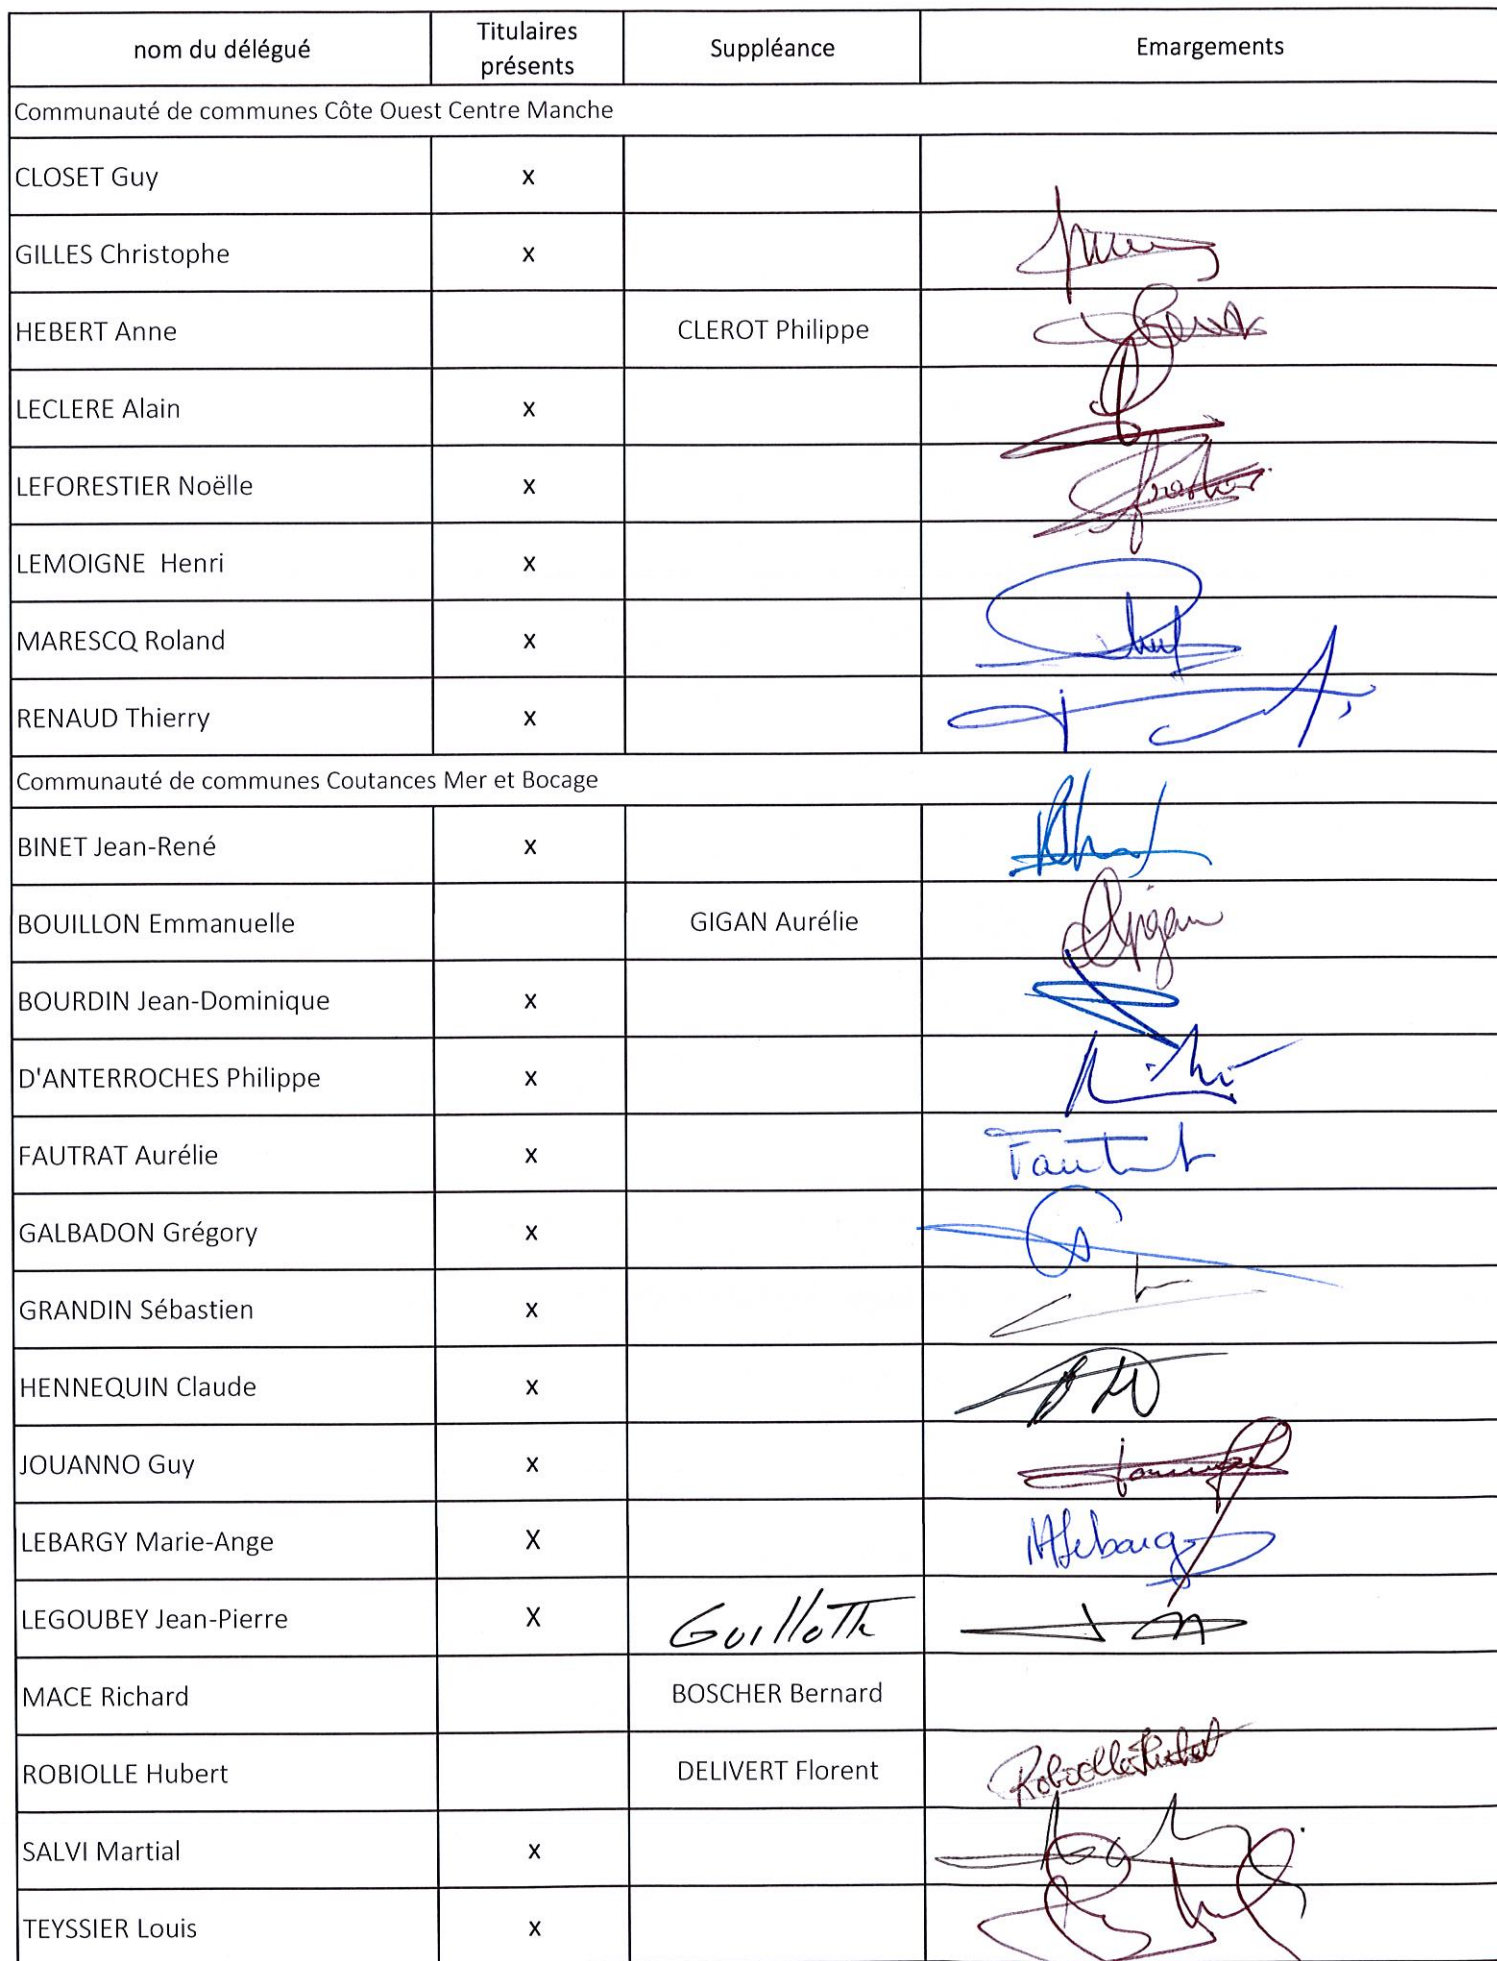 nom du délégué Titulaires présents Suppléance Emargements
Communauté de communes Côte Ouest Centre Manche
CLOSET Guy x
GILLES Christophe x
HEBERT Anne CLEROT Philippe
LECLERE Alain x
LEFORESTIER Noëlle x
LEMOIGNE Henri x
MARESCQ Roland x
RENAUD Thierry x
Communauté de communes Coutances Mer et Bocage
BINET Jean-René x
BOUILLON Emmanuelle GIGAN Aurélie
BOURDIN Jean-Dominique x
D'ANTERROCHES Philippe x
FAUTRAT Aurélie x
GALBADON Grégory x
GRANDIN Sébastien x
HENNEQUIN Claude x
JOUANNO Guy x
LEBARGY Marie-Ange X
LEGOUBEY Jean-Pierre X
MACE Richard BOSCHER Bernard
ROBIOLLE Hubert DELIVERT Florent
SALVI Martial x
TEYSSIER Louis x